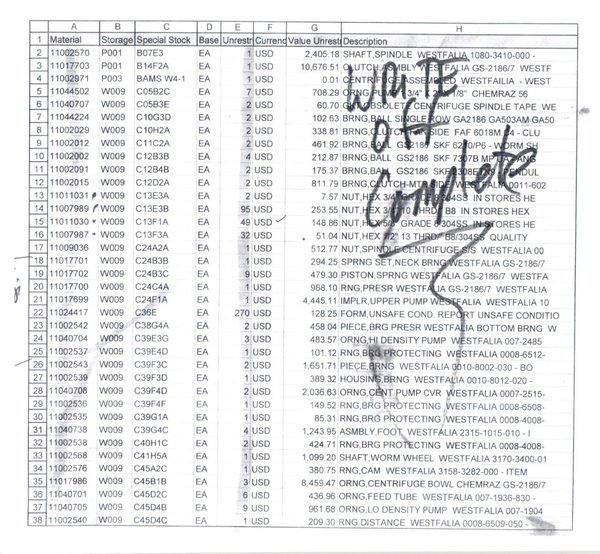 A B C D E F G H
1 Material Storage Special Stock Base Unrestr Currenc Value Unrestr Description
2 11002570 P001 B07E3 EA 1 USD 2,405.18 SHAFT,SPINDLE WESTFALIA 1080-3410-000 -
3 11017703 P001 B14F2A EA 1 USD 10,676.51 CLUTCH ASMBLY WESTFALIA GS-2186/7 WESTF
4 11002971 P003 BAMS W4-1 EA 1 USD 0.01 CENTRIFUGE ASSEMBED WESTFAILIA - WEST
5 11044502 W009 C05B2C EA 7 USD 708.29 ORNG 3/4" 1/8" CHEMRAZ 56
6 11040707 W009 C05B3E EA 2 USD 60.70 OBSOLETE CENTRIFUGE SPINDLE TAPE WE
7 11044224 W009 C10G3D EA 1 USD 102.63 BRNG,BALL SINGLE ROW GA2186 GA503AM GA50
8 11002029 W009 C10H2A EA 1 USD 338.81 BRNG,CLUTCH SIDE FAF 6018M - CLU
9 11002012 W009 C11C2A EA 2 USD 461.92 BRNG,BALL GS2186 SKF WORM SH
10 11002002 W009 C12B3B EA 4 USD 212.87 BRNG,BALL GS2186 SKF 7307B
11 11002091 W009 C12B4B EA 2 USD 175.37 BRNG,BALL GS2186 SKF PENDUL
12 11002015 W009 C12D2A EA 2 USD 811.79 BRNG,CLUTCH-MTR SIDE WESTFALIA 0011-602
13 11011031 W009 C13E3A EA 1 USD 7.57 NUT,HEX 3/4" 304SS IN STORES HE
14 11007989 W009 C13E3B EA 95 USD 253.55 NUT,HEX THRD B8 IN STORES HEX
15 11011530 W009 C13F1A EA 49 USD 148.86 NUT,HEX 5/8" GRADE 304SS IN STORES HE
16 11007987 W009 C13F3A EA 32 USD 51.04 NUT,HEX 1/2" 13 THRD B8/304SS QUALITY
17 11009036 W009 C24A2A EA 1 USD 512.77 NUT,SPINDLE CENTRIFUGE GS WESTFALIA 00
18 11017701 W009 C24B3B EA 1 USD 294.25 SPRNG SET,NECK BRNG WESTFALIA GS-2186/7
19 11017702 W009 C24B3C EA 9 USD 479.30 PISTON,SPRNG WESTFALIA GS-2186/7 WESTFA
20 11017700 W009 C24C4A EA 1 USD 968.10 RNG,PRESR WESTFALIA GS-2186/7 WESTFALIA
21 11017699 W009 C24F1A EA 1 USD 4,445.11 IMPLR,UPPER PUMP WESTFALIA WESTFALIA 10
22 11024417 W009 C36E EA 270 USD 128.25 FORM,UNSAFE COND. REPORT UNSAFE CONDITIO
23 11002542 W009 C38G4A EA 2 USD 458.04 PIECE,BRG PRESR WESTFALIA BOTTOM BRNG W
24 11040704 W009 C39E3G EA 3 USD 483.57 ORNG,HI DENSITY PUMP WESTFALIA 007-2485
25 11002537 W009 C39E4D EA 1 USD 101.12 RNG,BRG PROTECTING WESTFALIA 0008-6512-
26 11002543 W009 C39F3C EA 2 USD 1,651.71 PIECE,BRNG WESTFALIA 0010-8002-030 - BO
27 11002539 W009 C39F3D EA 1 USD 389.32 HOUSING,BRNG WESTFALIA 0010-8012-020 -
28 11040708 W009 C39F4D EA 2 USD 2,036.63 ORNG,CENT.PUMP CVR WESTFALIA 0007-2515-
29 11002536 W009 C39F4F EA 2 USD 149.52 RNG,BRG PROTECTING WESTFALIA 0008-6508-
30 11002535 W009 C39G1A EA 1 USD 85.31 RNG,BRG PROTECTING WESTFALIA 0008-4008-
31 11040738 W009 C39G4C EA 4 USD 1,243.95 ASMBLY,FOOT WESTFALIA 2315-1015-010 - I
32 11002538 W009 C40H1C EA 2 USD 424.71 RNG,BRG PROTECTING WESTFALIA 0008-4008-
33 11002568 W009 C41H5A EA 1 USD 1,099.20 SHAFT,WORM WHEEL WESTFALIA 3170-3400-01
34 11002576 W009 C45A2C EA 1 USD 380.75 RNG,CAM WESTFALIA 3158-3282-000 - ITEM
35 11017986 W009 C45B1B EA 3 USD 8,459.47 ORNG,CENTRIFUGE BOWL CHEMRAZ GS-2186/7
36 11040701 W009 C45D2C EA 6 USD 436.96 ORNG,FEED TUBE WESTFALIA 007-1936-830 -
37 11040705 W009 C45D4B EA 9 USD 961.68 ORNG,LO DENSITY PUMP WESTFALIA 007-1904
38 11002540 W009 C45D4C EA 1 USD 209.30 RNG,DISTANCE WESTFALIA 0008-6509-050 -
WRITE
OFF
Complete